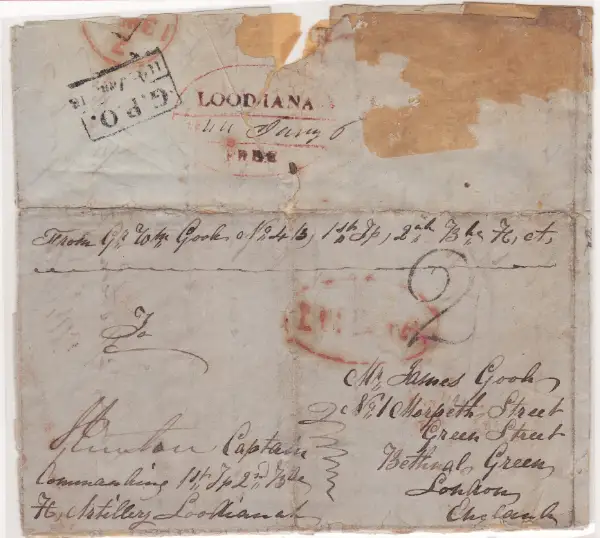 G.P.O.
LOODIANA
Jany 6
FREE
From Gr Wm Gooch No 43, 1st Tp, 2nd Bde H, A,
To
2
Mr James Gooch
No 1 Morpeth Street
Green Street
Bethnal Green
London
England
Captain
Commanding 1st Tp 2nd Bde
H, Artillery Loodianah